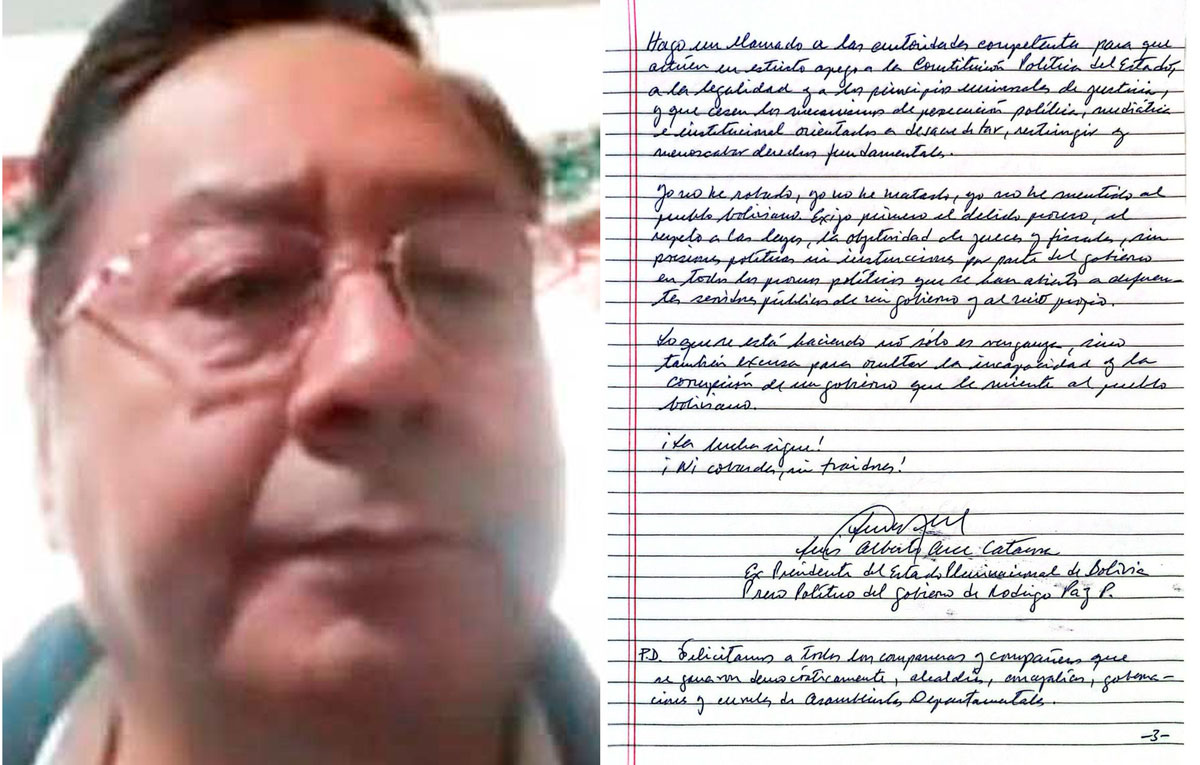 Hago un llamado a las autoridades competentes para que
actúen en estricto apego a la Constitución Política del Estado,
a la legalidad y a los principios universales de justicia,
y que cesen los mecanismos de persecución política, mediática
e institucional orientados a desacreditar, restringir y
menoscabar derechos fundamentales.
Yo no he robado, yo no he matado, yo no he mentido al
pueblo boliviano. Exijo primero el debido proceso, el
respeto a las leyes, la objetividad de jueces y fiscales, sin
presiones políticas ni instrucciones por parte del gobierno
en todos los procesos políticos que se han abierto a diferen-
tes servidores públicos de mi gobierno y al mío propio.
Lo que se está haciendo no sólo es venganza, sino
también excusa para ocultar la incapacidad y la
corrupción de un gobierno que le miente al pueblo
boliviano.
¡La lucha sigue!
¡Ni cobardes, ni traidores!
Luis Alberto Arce Catacora
Ex Presidente del Estado Plurinacional de Bolivia
Preso Político del gobierno de Rodrigo Paz P.
P.D. Felicitamos a todos los compañeras y compañeros que
se ganaron democráticamente, alcaldías, concejalías, goberna-
ciones y curules de Asambleístas Departamentales.
-3-